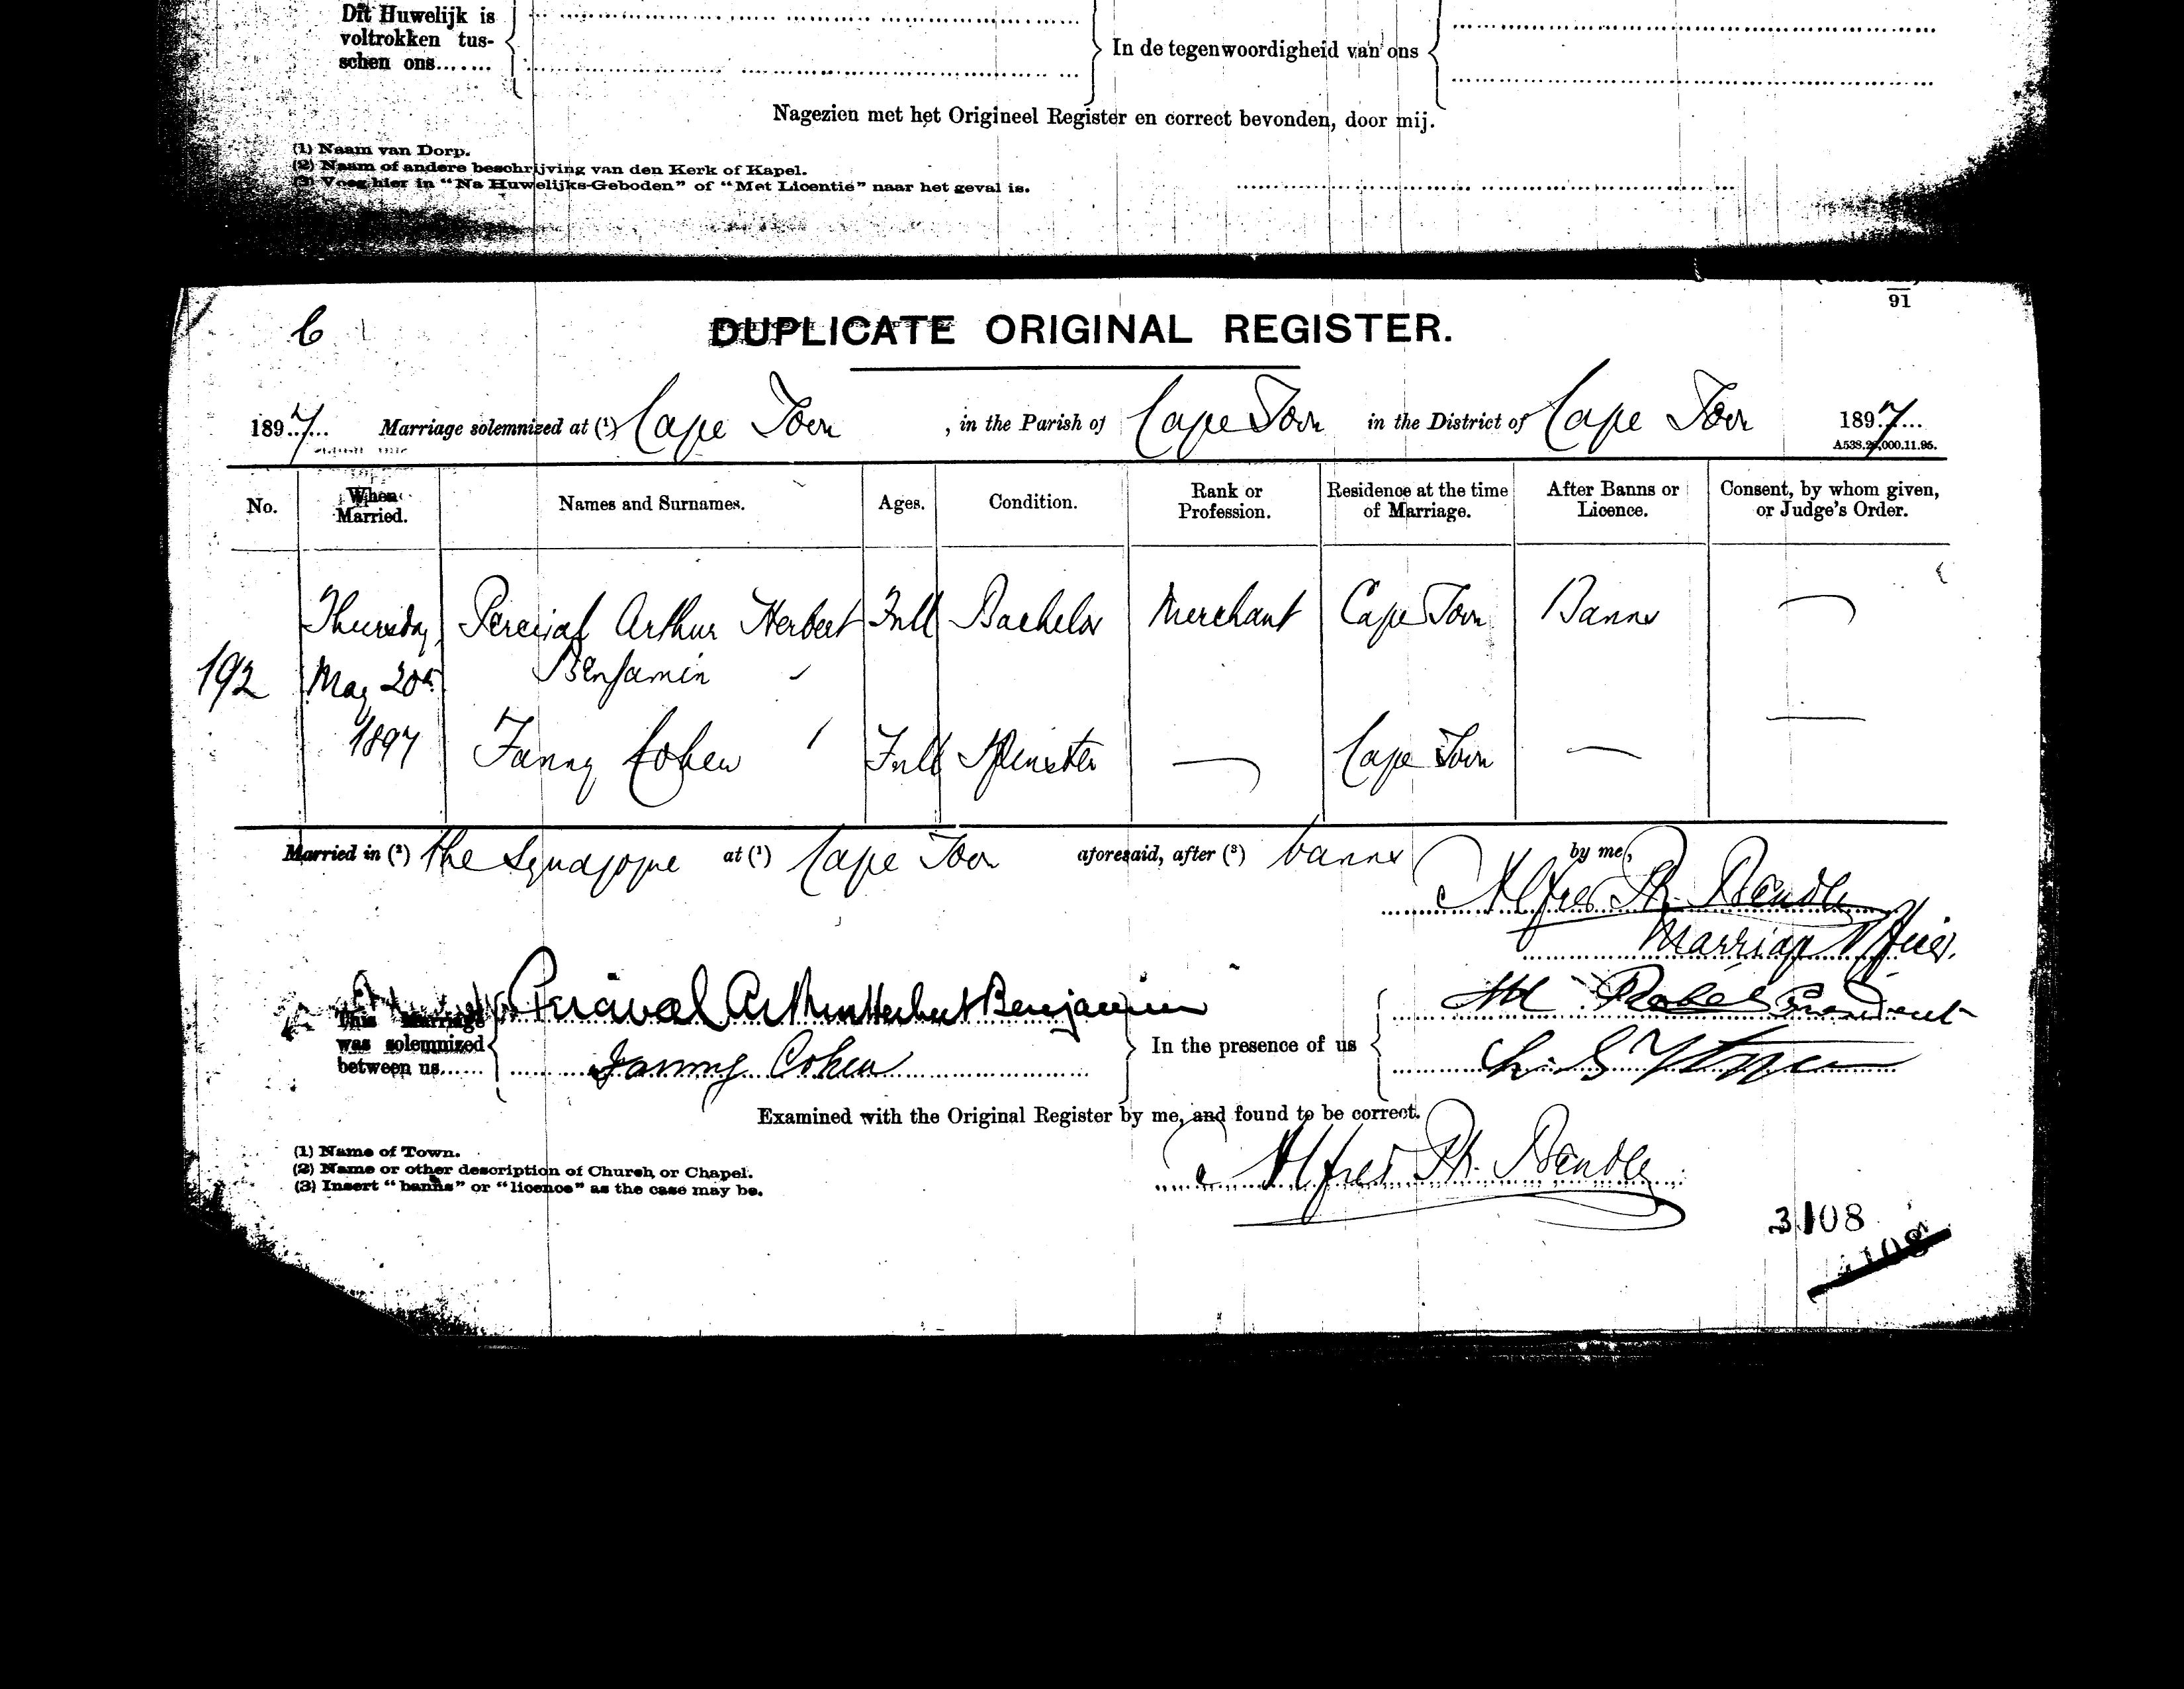 Dit Huwelijk is
voltrokken tus-
schen ons.......
In de tegenwoordigheid van ons
Nagezien met het Origineel Register en correct bevonden, door mij.
(1) Naam van Dorp.
(2) Naam of andere beschrijving van den Kerk of Kapel.
(3) Voeg hier in "Na Huwelijks-Geboden" of "Met Licentie" naar het geval is.
91
C
DUPLICATE ORIGINAL REGISTER.
1897 Marriage solemnized at (1) Cape Town, in the Parish of Cape Town in the District of Cape Town 1897
No. When Married. Names and Surnames. Ages. Condition. Rank or Profession. Residence at the time of Marriage. After Banns or Licence. Consent, by whom given, or Judge's Order.
Thursday Percival Arthur Herbert Full Bachelor Merchant Cape Town Banns —
192 May 20th Benjamin
1897 Fanny Cohen Full Spinster — Cape Town — —
Married in (2) the Synagogue at (1) Cape Town aforesaid, after (3) banns by me,
Alfred Ph. Bender
Marriage Officer.
This Marriage
was solemnized
between us......
Percival Arthur Herbert Benjamin
Fanny Cohen
In the presence of us
President
Examined with the Original Register by me, and found to be correct.
Alfred Ph. Bender
(1) Name of Town.
(2) Name or other description of Church or Chapel.
(3) Insert "banns" or "licence" as the case may be.
3108